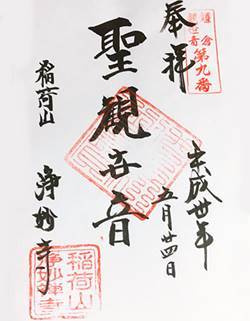 奉拝
鎌倉
観世音
第九番
平成卅年
五月廿四日
聖観世音
稲荷山 浄妙寺
稲荷山
浄妙禅寺